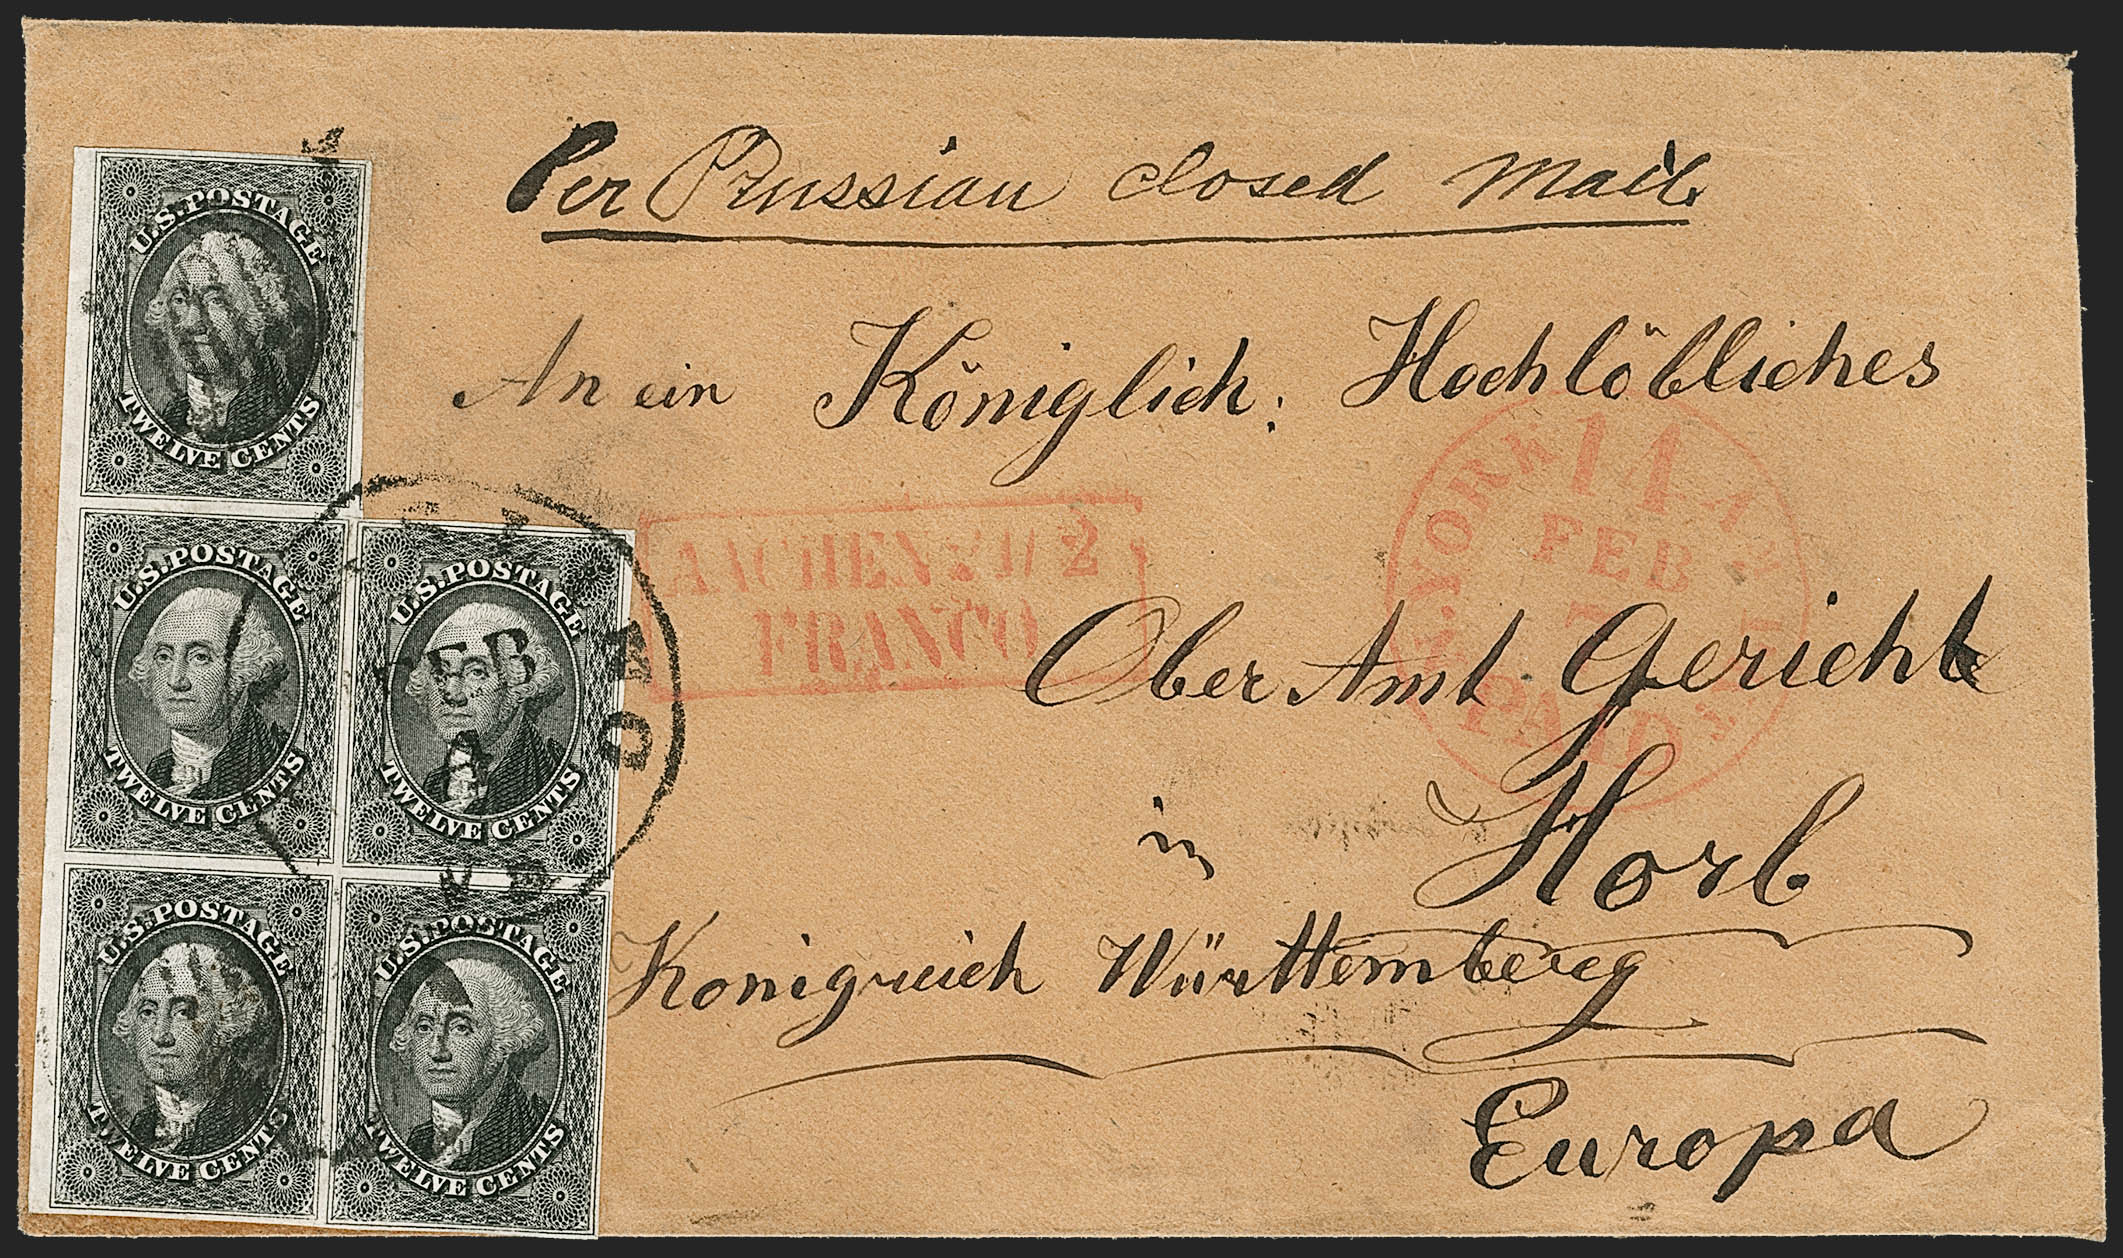 Per Prussian closed Mail.
An ein Königlich. Hochlöbliches
Ober Amt Gericht
in Horb
Konigreich Württemberg
Europa
U.S. POSTAGE
TWELVE CENTS
U.S. POSTAGE
TWELVE CENTS
U.S. POSTAGE
TWELVE CENTS
U.S. POSTAGE
TWELVE CENTS
U.S. POSTAGE
TWELVE CENTS
FEB
AACHEN 2
FRANCO
N. YORK 11 AM. PKT.
FEB
7
PAID